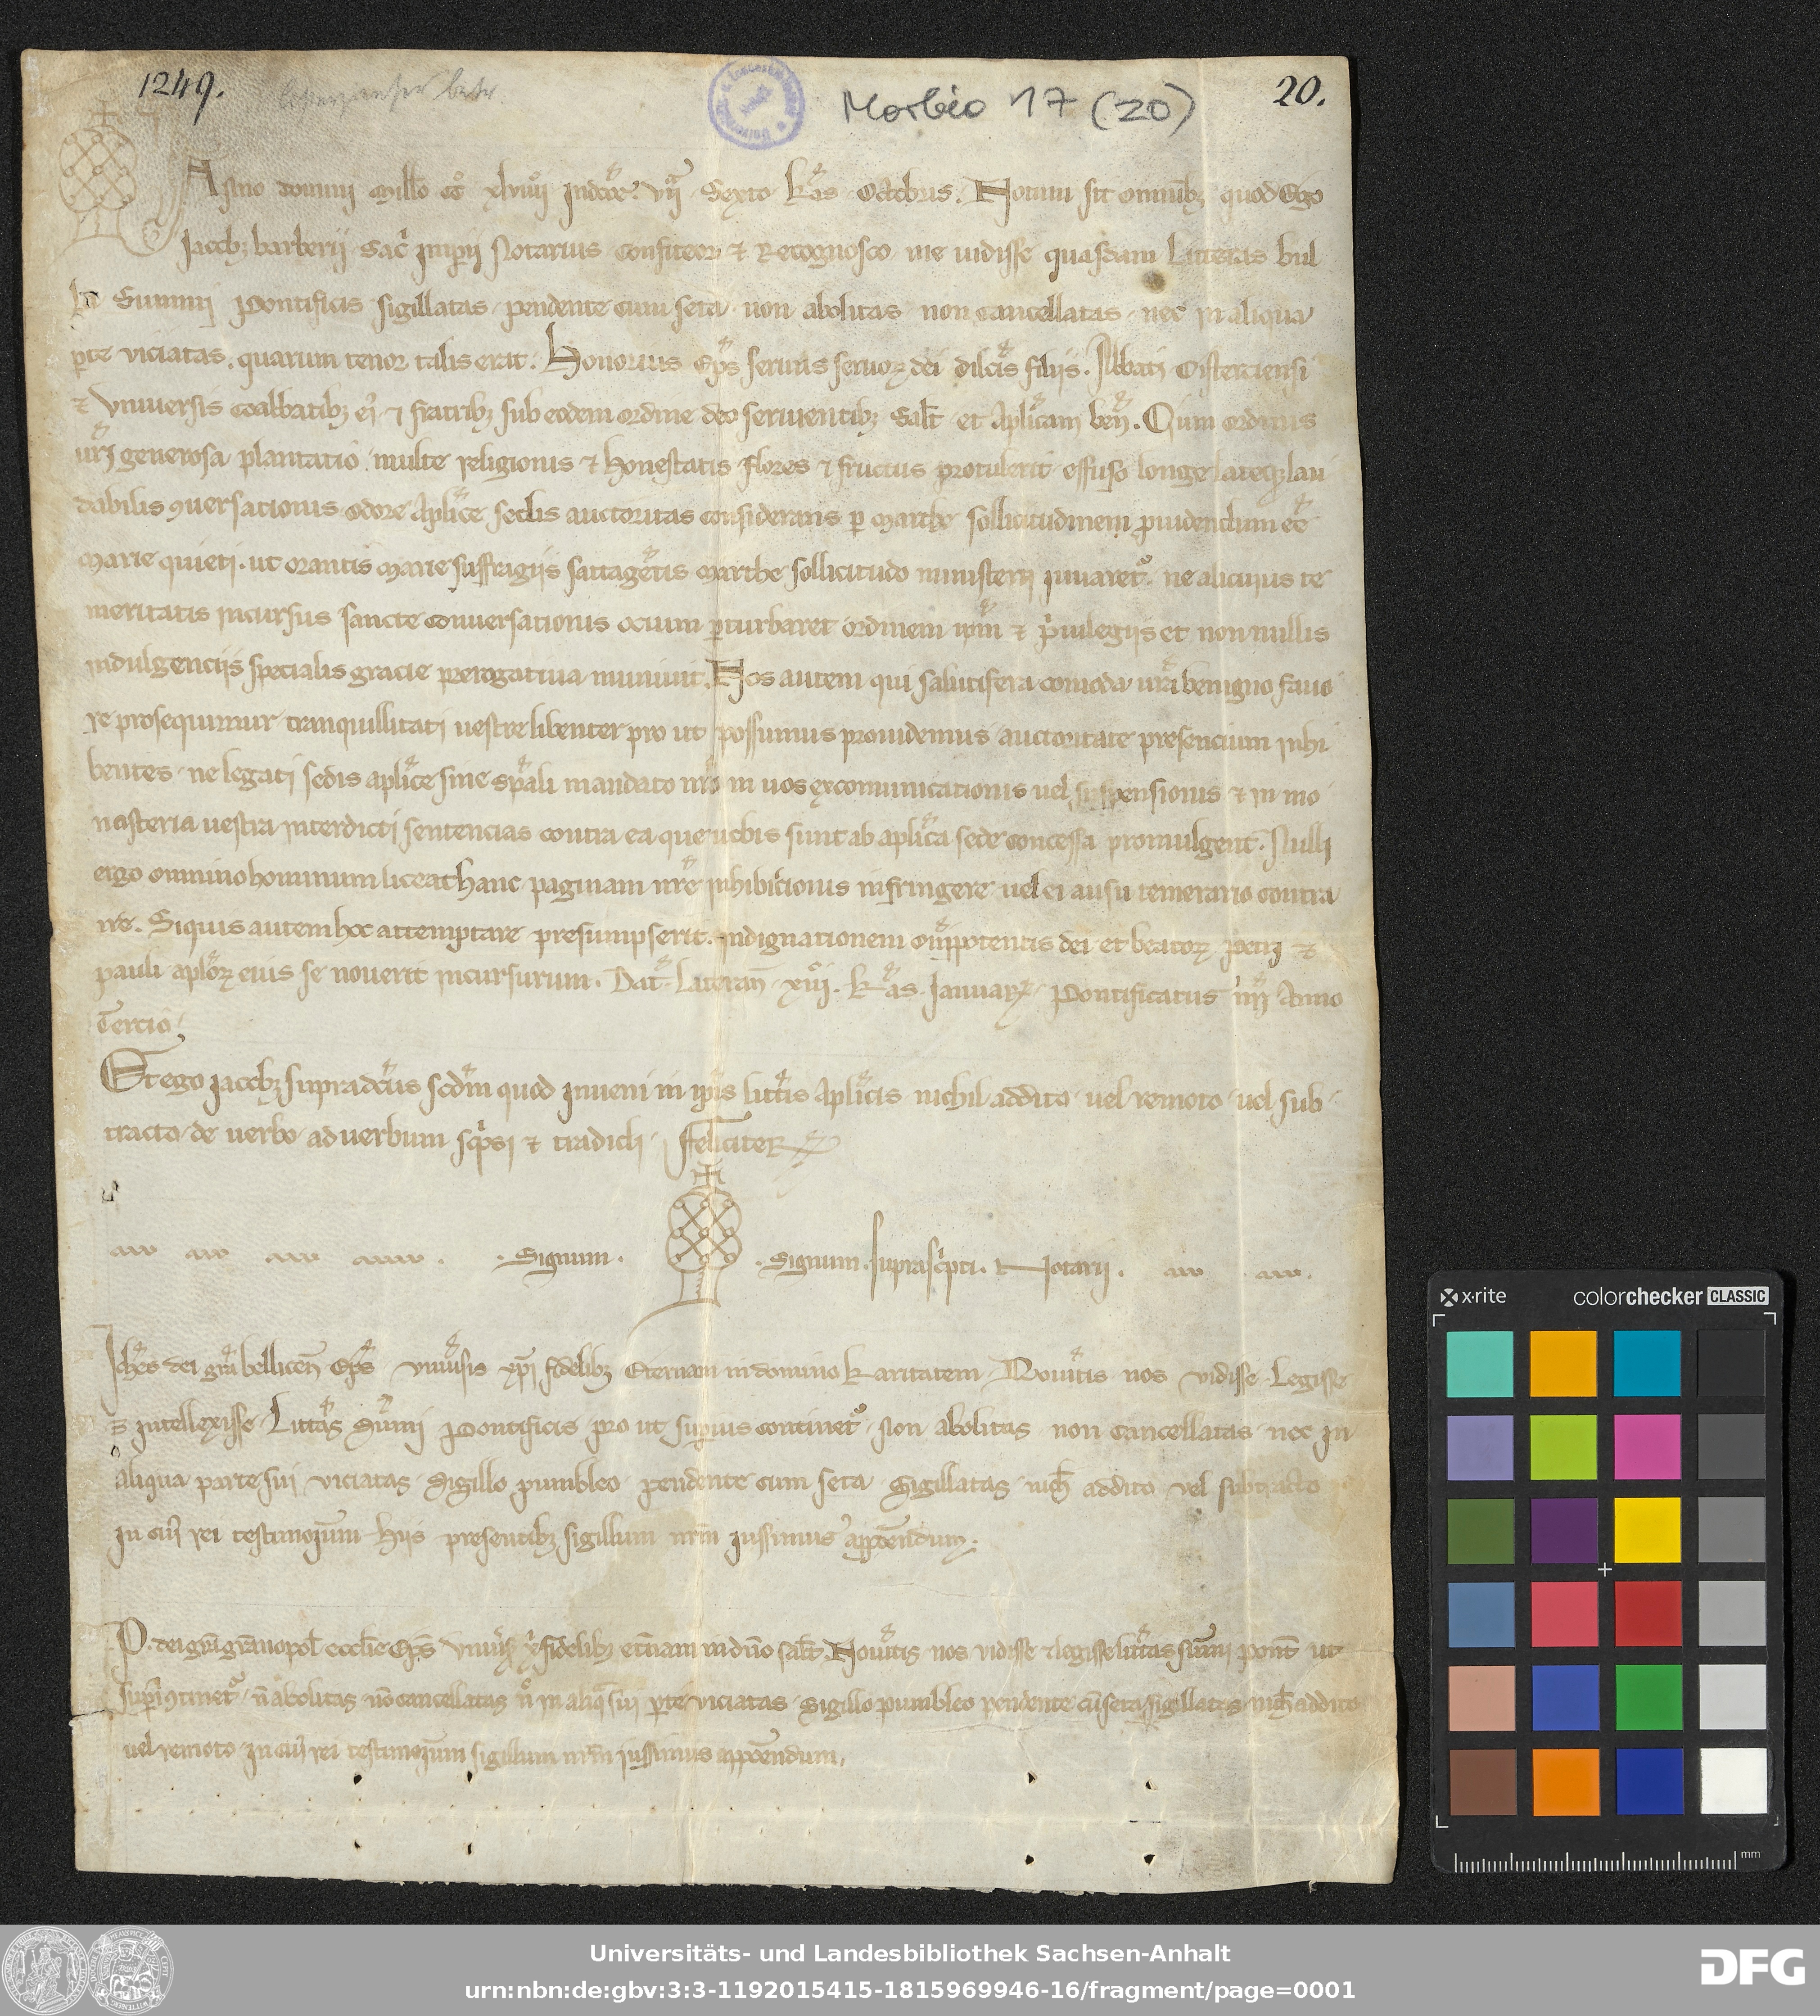 1249.
20.
Morbio 17 (20)
Anno domini Mill̄o cc̊ xlviiij Indcōe. vij Sexto kl̄as Octobris. Notum sit omnibȝ quod Ego
Iacobȝ barberij Sac̄ Imp̄ij Notarius confiteor ⁊ Recognosco me uidisse quasdam Litteras bul
la Summj Pontificis sigillatas pendente cum seta non abolitas non cancellatas nec in aliqua
ꝑte viciatas. quarum tenor talis erat. Honorius Ep̄s seruus seruoꝝ dei dilc̄is filijs. Abbati Cisterciensi
⁊ Vniuersis coabbatibȝ ei᾽ ⁊ fratribȝ sub eodem ordine deo seruientibȝ Salt̄ et Ap̄licam ben̄. Cum ordinis
ur̄j generosa plantatio multe religionis ⁊ honestatis flores ⁊ fructus protulerit effuso longe lateqȝ lau
dabilis ꝯuersationis odore Ap̄lice sedis auctoritas considerans ꝑ Marthe sollicitudinem ꝓuidendum eē
Marie quieti. ut orantis Marie suffragijs sattagētis Marthe sollicitudo ministerij iuuaret᷑. ne alicuius te
meritatis incursus sancte conuersationis ocium ꝑturbaret ordinem ip̄m ⁊ p͛uilegijs et non nullis
indulgencijs specialis gracie prerogatiua muniuit. Nos autem qui salutifera comoda ur̄a benigno fauo
re prosequimur tranquillitati uestre libenter pro ut possumus prouidemus auctoritate presencium inhi
bentes ne legati sedis ap̄lice sine sp̄ali mandato nr̄o in uos excomunicationis uel suspensionis ⁊ in mo
nasteria uestra interdicti sentencias contra ea que uobis sunt ab ap̄lica sede concessa promulgent. Nulli
ergo omnino hominum liceat hanc paginam nr̄e inhibitionis infringere uel ei ausu temerario contra
ire. Siquis autem hoc attemptare presumpserit. indignationem om̄ipotentis dei et beatoꝝ petri ⁊
pauli ap̄loꝝ eius se nouerit incursurum. Dat̄ Lateran̄ xiiij. kl̄as Ianuarꝝ. Pontificatus nr̄j Anno
Tercio.
Et ego iacobȝ supradc̄us scd̄m quod inueni in ip̄is litt̄is Ap̄licis nichil addito uel remoto uel sub
tracto de uerbo ad uerbum sc͛psi ⁊ tradidi. ffeliciteR
. Signum . . Signum. suprasc͛pti. Notarij .
dei gr̄a bellicen̄ Ep̄s vniu᾽sis xp̄i fidelibȝ Eternam in domino karitatem Nou᾽itis nos vidisse Legisse
⁊ intellexisse Litt᾽as Su᾽mi Pontificis pro ut superius continet᷑. Non abolitas non cancellatas nec in
aliqua parte sui viciatas Sigillo pumbleo pendente cum seta Sigillatas nich̄ addito vel subtracto
In cui᾽ rei testimoium hijs presentibȝ sigillum nr̄m iussimus appōendum.
P. dei gr̄a gr̄anopol̄ ecclie Ep̄s vniu᾽s᾽ x᾽ fidelibȝ et̄nam in dn̄o sal̄t Nou᾽itis nos vidisse ⁊ legisse litt᾽as su᾽mi pont̄ ut
sup᾽i᾽ ꝯtinet᷑. n̄ abolitas nō cancellatas n̄ in aliq̄ sui ꝑte viciatas Sigillo pumbleo pendente cū seta sigillatas nich̄ addito
uel remoto in cui᾽ rei testimoium sigillum nr̄m iussimus appōendum.
x·rite colorchecker CLASSIC
mm
Universitäts- und Landesbibliothek Sachsen-Anhalt
urn:nbn:de:gbv:3:3-1192015415-1815969946-16/fragment/page=0001
DFG